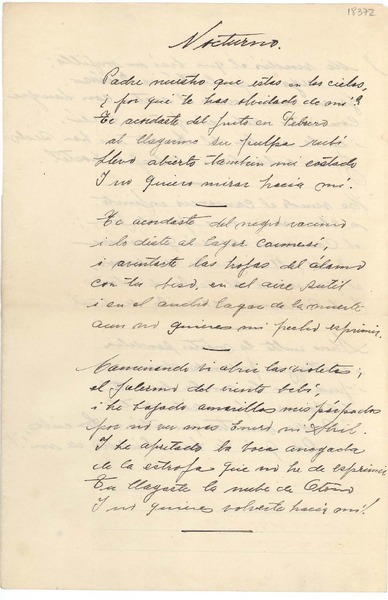 18372
Nocturno.
Padre nuestro que estas en los cielos,
¿ por qué te has olvidado de mí?
Te acordaste del fruto en Febrero
al llagarse su pulpa rubí
Llevo abierto tambien mi costado
I no quiero mirar hacia mí.
Te acordaste del negro racimo
i lo diste al lagar carmesí,
i aventaste las hojas del álamo
con tu en el aire sutil
i en el ancho lagar de la muerte
aun no quieres mi pecho esprimir.
Caminando vi abrir las violetas;
el falerno del viento bebí,
i he bajado amarillos mis párpados
por no ver mas Enero ni Abril.
I he apretado la boca anegada
de la estrofa que no he de esprimir
Tu llagaste la nube de Otoño
I no quieres volverte hacia mí!